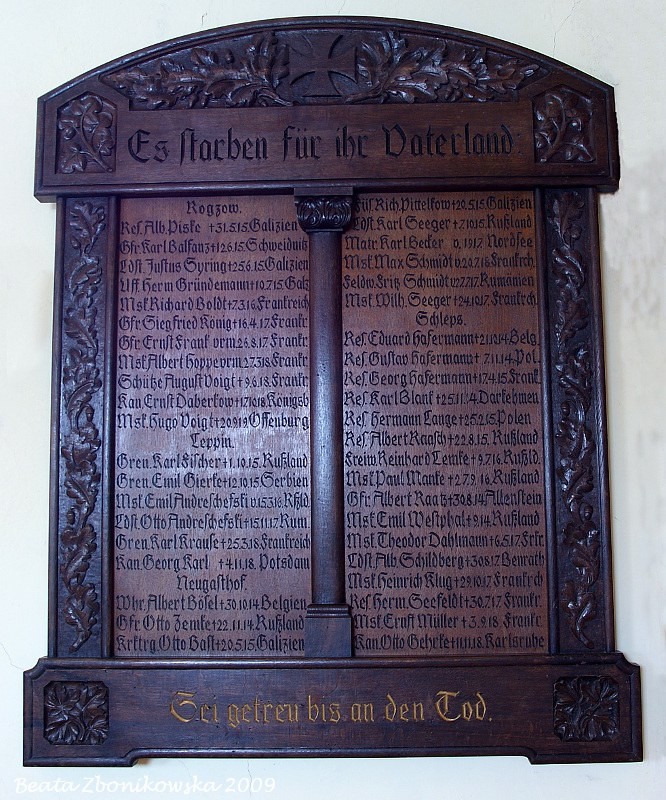 Es starben für ihr Vaterland
Rogzow.
Res. Alb. Piske +31.5.15. Galizien
Gfr. Karl Balfanz +12.6.15. Schweidnitz
Ldst. Justus Syring +25.6.15. Galizien
Uff. Herm. Gründemann +10.7.15. Galz
Msk. Richard Boldt +7.3.16. Frankreich
Gfr. Siegfried König +16.4.17. Frankr.
Gfr. Ernst Frank vrm 26.8.17. Frankr.
Msk. Albert Hoppe vrm 27.3.18. Frankr.
Schütze August Voigt +9.6.18. Frankr.
Kan. Ernst Daberkow +17.10.18 Königsb
Msk. Hugo Voigt +20.9.19 Offenburg
Leppin.
Gren. Karl Fischer +1.10.15. Rußland
Gren. Emil Gierke +12.10.15 Serbien
Msk. Emil Andreschefski v.15.3.16. Rßld.
Ldst. Otto Andreschefski +15.11.17 Rum.
Gren. Karl Krause +25.3.18. Frankreich
Kan. Georg Karl +4.11.18. Potsdam
Neugasthof.
Whr. Albert Bösel +30.10.14. Belgien
Gfr. Otto Zemke +22.11.14. Rußland
Krktrg. Otto Bast +20.5.15. Galizien
Füs. Rich. Pittelkow +20.5.15. Galizien
Ldst. Karl Seeger +7.10.15. Rußland
Matr. Karl Becker v. 1917 Nordsee
Msk. Max Schmidt v.20.7.18 Frankrch.
Feldw. Fritz Schmidt v.27.7.17. Rumänien
Msk. Wilh. Seeger +24.10.17. Frankrch.
Schleps.
Res. Eduard Hafermann +21.10.14. Belg.
Res. Gustav Hafermann +7.11.14. Pol.
Res. Georg Hafermann +17.4.15. Frank.
Res. Karl Blank +25.11.14. Darkehmen
Res. Hermann Lange +25.2.15. Polen
Res. Albert Raasch +22.8.15. Rußland
Freiw. Reinhard Lemke +9.7.16. Rußld.
Msk. Paul Manke +27.9.16. Rußland
Gfr. Albert Raatz +30.8.14. Allenstein
Msk. Emil Westphal +9.14. Rußland
Msk. Theodor Dahlmann +16.5.17. Frkr.
Ldst. Alb. Schildberg +30.8.17 Benrath
Msk. Heinrich Klug +29.10.17. Frankrch
Res. Herm. Seefeldt +30.7.17. Frankr.
Msk. Ernst Müller +3.9.18. Frankr.
Kan. Otto Gehrke +11.11.18. Karlsruhe
Sei getreu bis an den Tod.
Beata Zbonikowska 2009